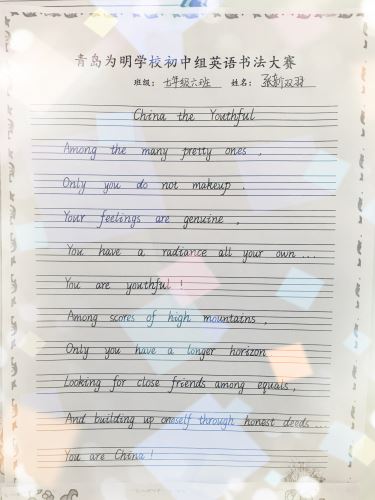 青岛为明学校初中组英语书法大赛
班级：七年级六班 姓名：张新双羽
China the Youthful
Among the many pretty ones ,
Only you do not makeup .
Your feelings are genuine ,
You have a radiance all your own ...
You are youthful !
Among scores of high mountains ,
Only you have a longer horizon
Looking for close friends among equals ,
And building up oneself through honest deeds ...
You are China !